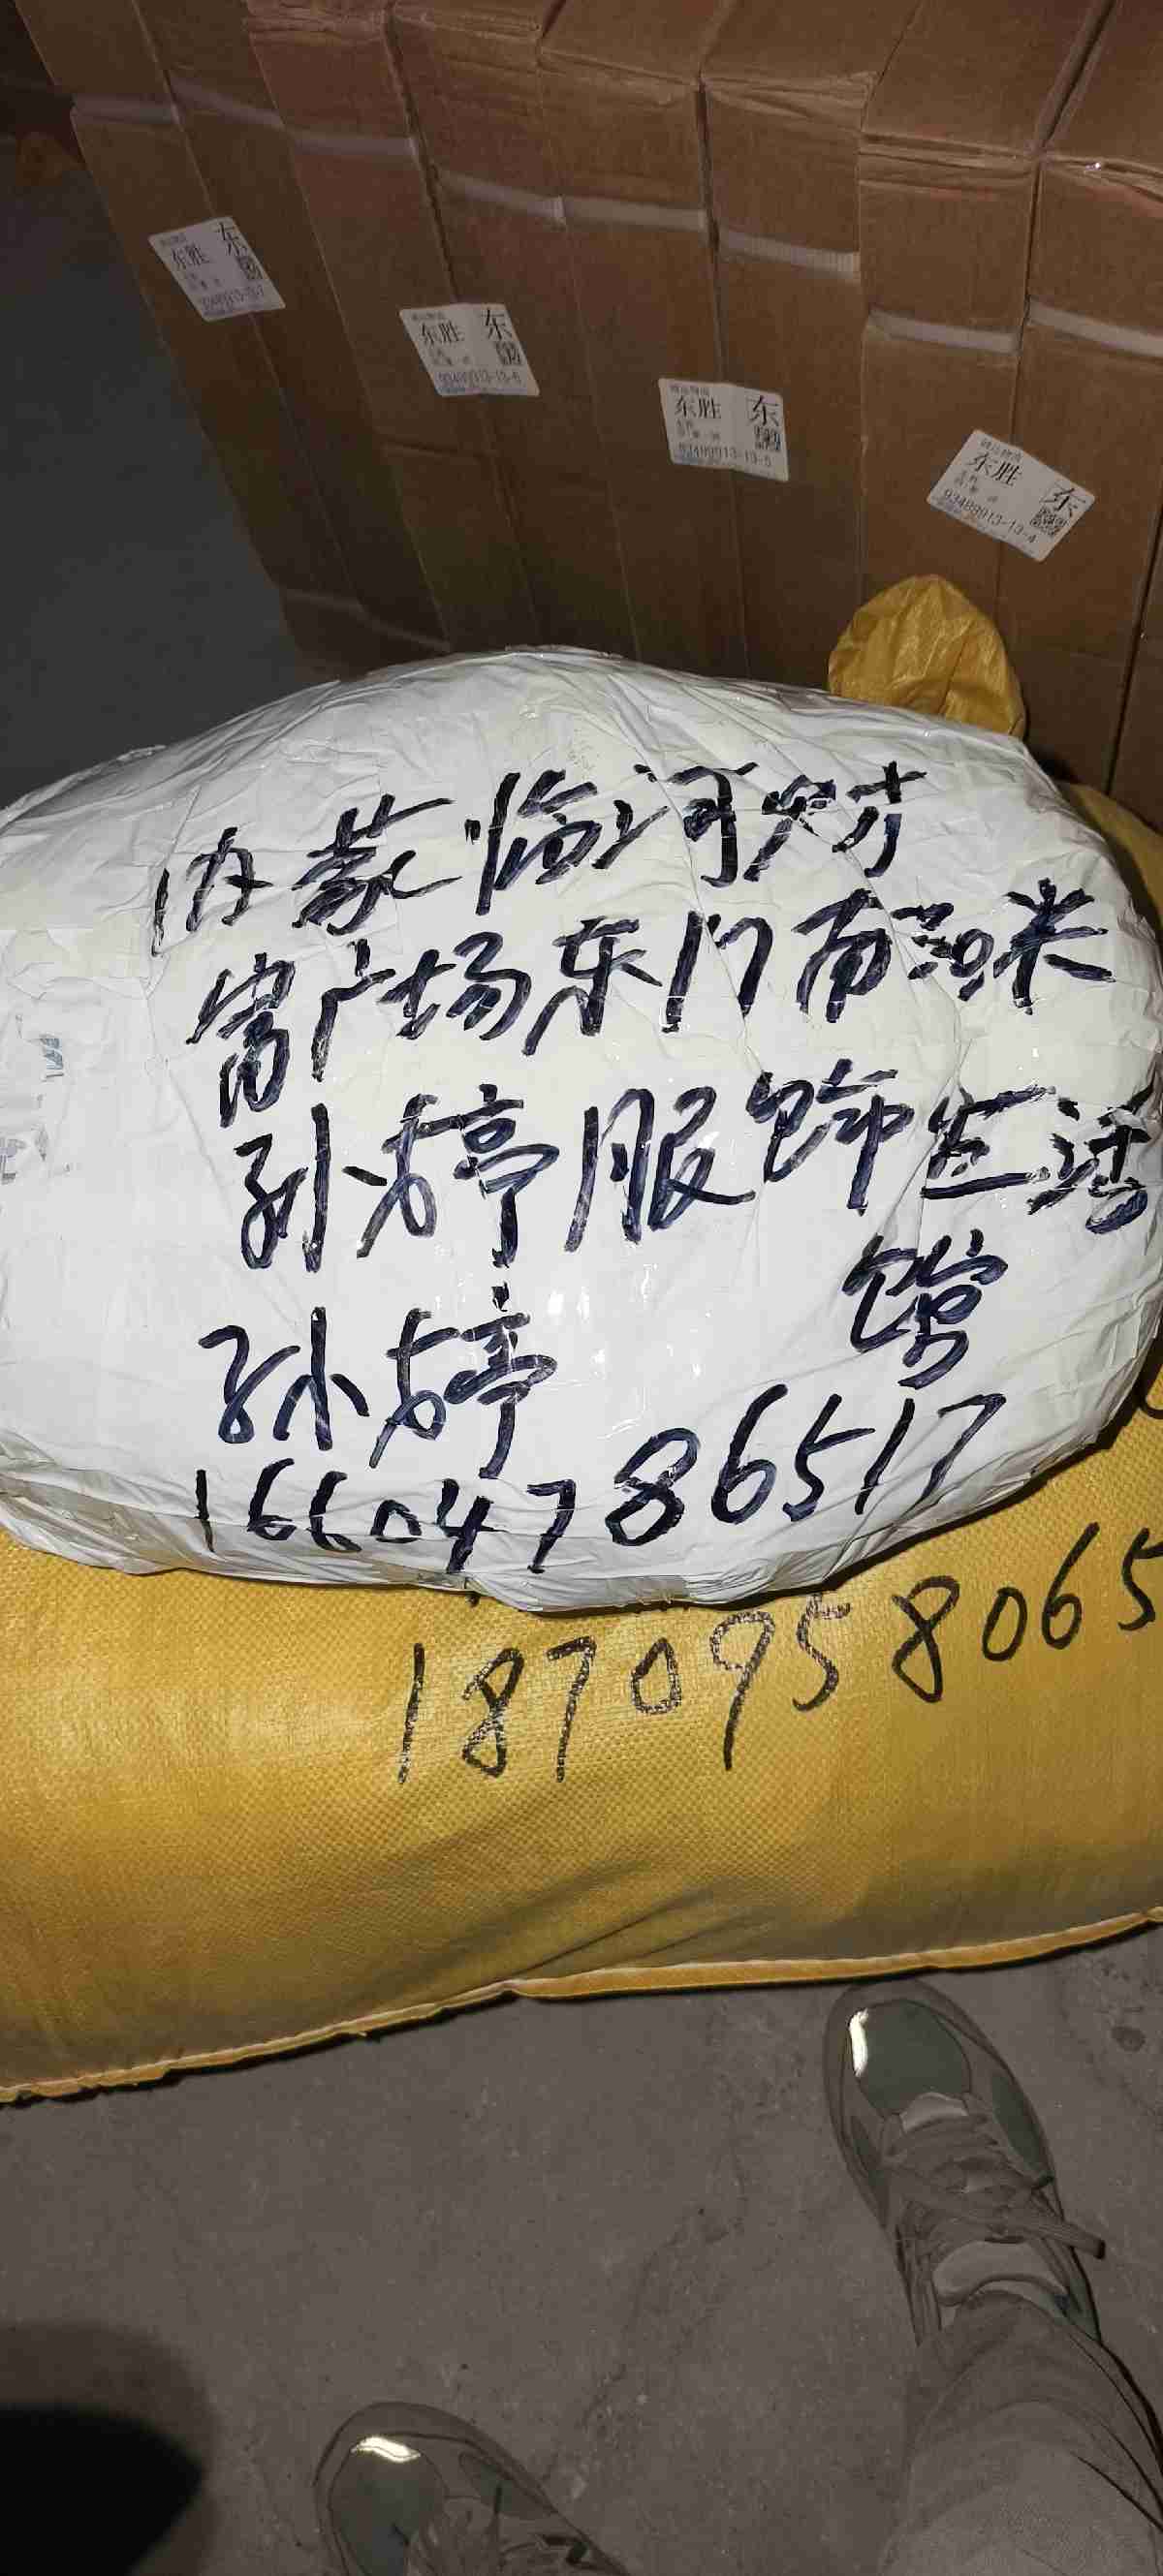 东胜 东
93489913-13-7
东胜 东
93489913-13-6
东胜 东
93489913-13-5
东胜 东
93489913-13-4
内蒙临河财
富广场东门南30米
孙婷服饰生活
馆
孙婷
16604786517
187095 8065